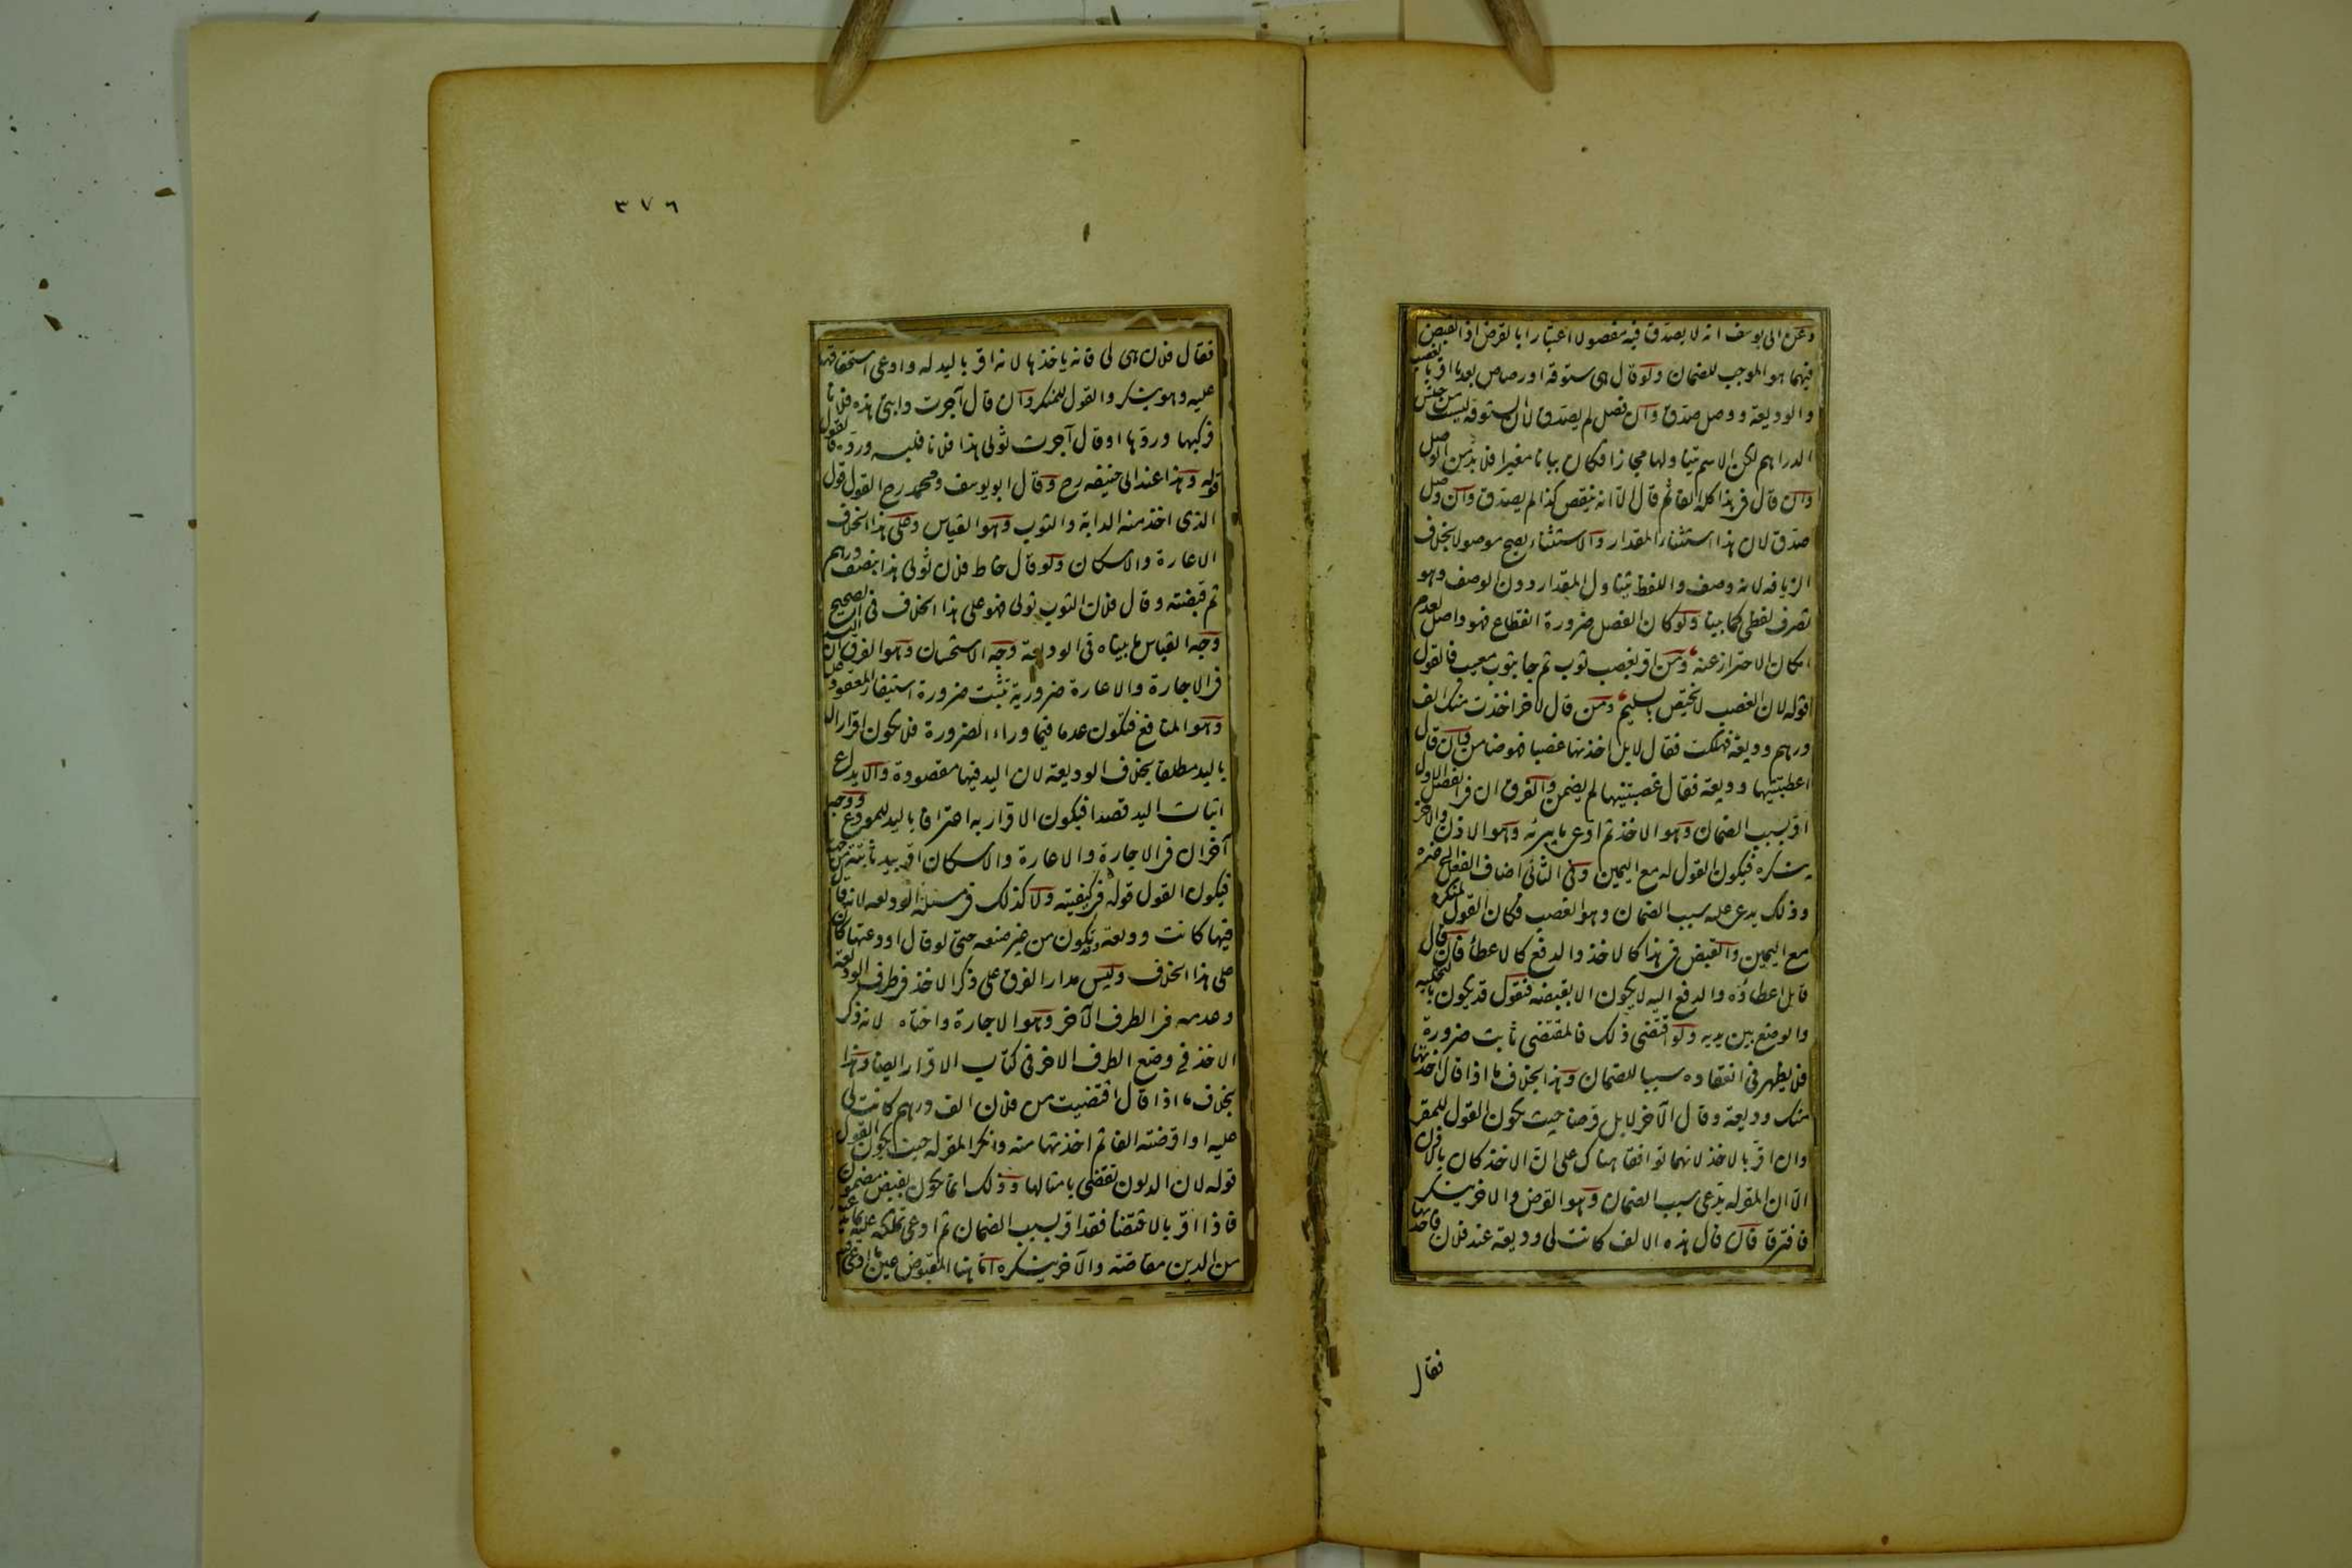 وعن ابى يوسف انه لا يصدق فيه مفصولا اعتبارا بالقرض اذ القبض
فيهما هو الموجب للضمان ولو قال هى ستوقة او رصاص بعد ما اقر بالغصب
والوديعة ووصل صدق وان فصل لم يصدق لان الستوقة ليست من جنس
الدراهم لكن الاسم يتناولها مجازا فكان بيانا مغيرا فلا بد من الوصل
وان قال فى هذا كله الفا ثم قال الا انه ينقص كذا لم يصدق وان وصل
صدق لان هذا استثناء المقدار والاستثناء يصح موصولا بخلاف
الزيافة لانه وصف واللفظ يتناول المقدار دون الوصف وهو
تصرف لفظى كما بينا ولو كان الفصل ضرورة انقطاع فهو واصل لعدم
امكان الاحتراز عنه ومن اقر بغصب ثوب ثم جا بثوب معيب فالقول
قوله لان الغصب لا يختص بالسليم ومن قال لاخر اخذت منك الف
درهم وديعة فهلكت فقال لا بل اخذتها غصبا فهو ضامن وان قال
اعطيتنيها وديعة فقال غصبتنيها لم يضمن والفرق ان فى الفصل الاول
اقر بسبب الضمان وهو الاخذ ثم ادعى ما يبرئه وهو الاذن والاخر
ينكره فيكون القول له مع اليمين وفى الثانى اضاف الفعل الى غيره
وذلك يدعى عليه سبب الضمان وهو الغصب فكان القول لمنكره
مع اليمين والقبض فى هذا كالاخذ والدفع كالاعطاء فان قال
قائل اعطاؤه والدفع اليه لا يكون الا بقبضه فنقول قد يكون بالتخلية
والوضع بين يديه ولو اقتضى ذلك فالمقتضى ثابت ضرورة
فلا يظهر فى انعقاده سببا للضمان وهذا بخلاف ما اذا قال اخذتها
منك وديعة وقال الآخر لا بل قرضا حيث يكون القول للمقر
وان اقر بالاخذ لانهما توافقا هناك على ان الاخذ كان بالاذن
الا ان المقر له يدعى سبب الضمان وهو القرض والاخر ينكر
فافترقا فان قال هذه الالف كانت لى وديعة عند فلان فاخذتها
فقال
٣٧٦
فقال فلان هى لى فانه ياخذها لانه اقر باليد له وادعى استحقاقها
عليه وهو ينكر والقول للمنكر وان قال آجرت دابتى هذه فلانا
فركبها وردها او قال آجرت ثوبى هذا فلانا فلبسه ورده فالقول
قوله وهذا عند ابى حنيفه رح وقال ابو يوسف ومحمد رح القول قول
الذى اخذ منه الدابة والثوب وهو القياس وعلى هذا الخلاف
الاعارة والاسكان ولو قال خاط فلان ثوبى هذا بنصف درهم
ثم قبضته وقال فلان الثوب ثوبى فهو على هذا الخلاف فى الصحيح
وجه القياس ما بيناه فى الوديعة وجه الاستحسان وهو الفرق ان اليد
فى الاجارة والاعارة ضرورية تثبت ضرورة استيفاء المعقود عليه
وهو المنافع فتكون عدما فيما وراء الضرورة فلا يكون اقرارا له
باليد مطلقا بخلاف الوديعة لان اليد فيها مقصودة والايداع
اثبات اليد قصدا فيكون الاقرار به اعترافا باليد للمودع ووجه
آخر ان فى الاجارة والاعارة والاسكان اقر بيد ثابتة من جهته
فيكون القول قوله فى كيفيته ولا كذلك فى مسئلة الوديعه لانه قال
فيها كانت وديعة وقد تكون من غير صنعه حتى لو قال اودعتها كان
على هذا الخلاف وليس مدار الفرق على ذكر الاخذ فى طرف الوديعة
وعدمه فى الطرف الآخر وهو الاجارة واختاه لانه ذكر
الاخذ فى وضع الطرف الاخر فى كتاب الاقرار ايضا وهذا
بخلاف ما اذا قال اقتضيت من فلان الف درهم كانت لى
عليه او اقرضته الفا ثم اخذتها منه وانكر المقر له حيث يكون القول
قوله لان الديون تقضى بامثالها وذلك انما يكون بقبض مضمون
فاذا اقر بالاقتضا فقد اقر بسبب الضمان ثم ادعى تملكه عليه بما يدعيه
من الدين مقاصة والآخر ينكره اما هنا المقبوض عين ما ادعى فيه